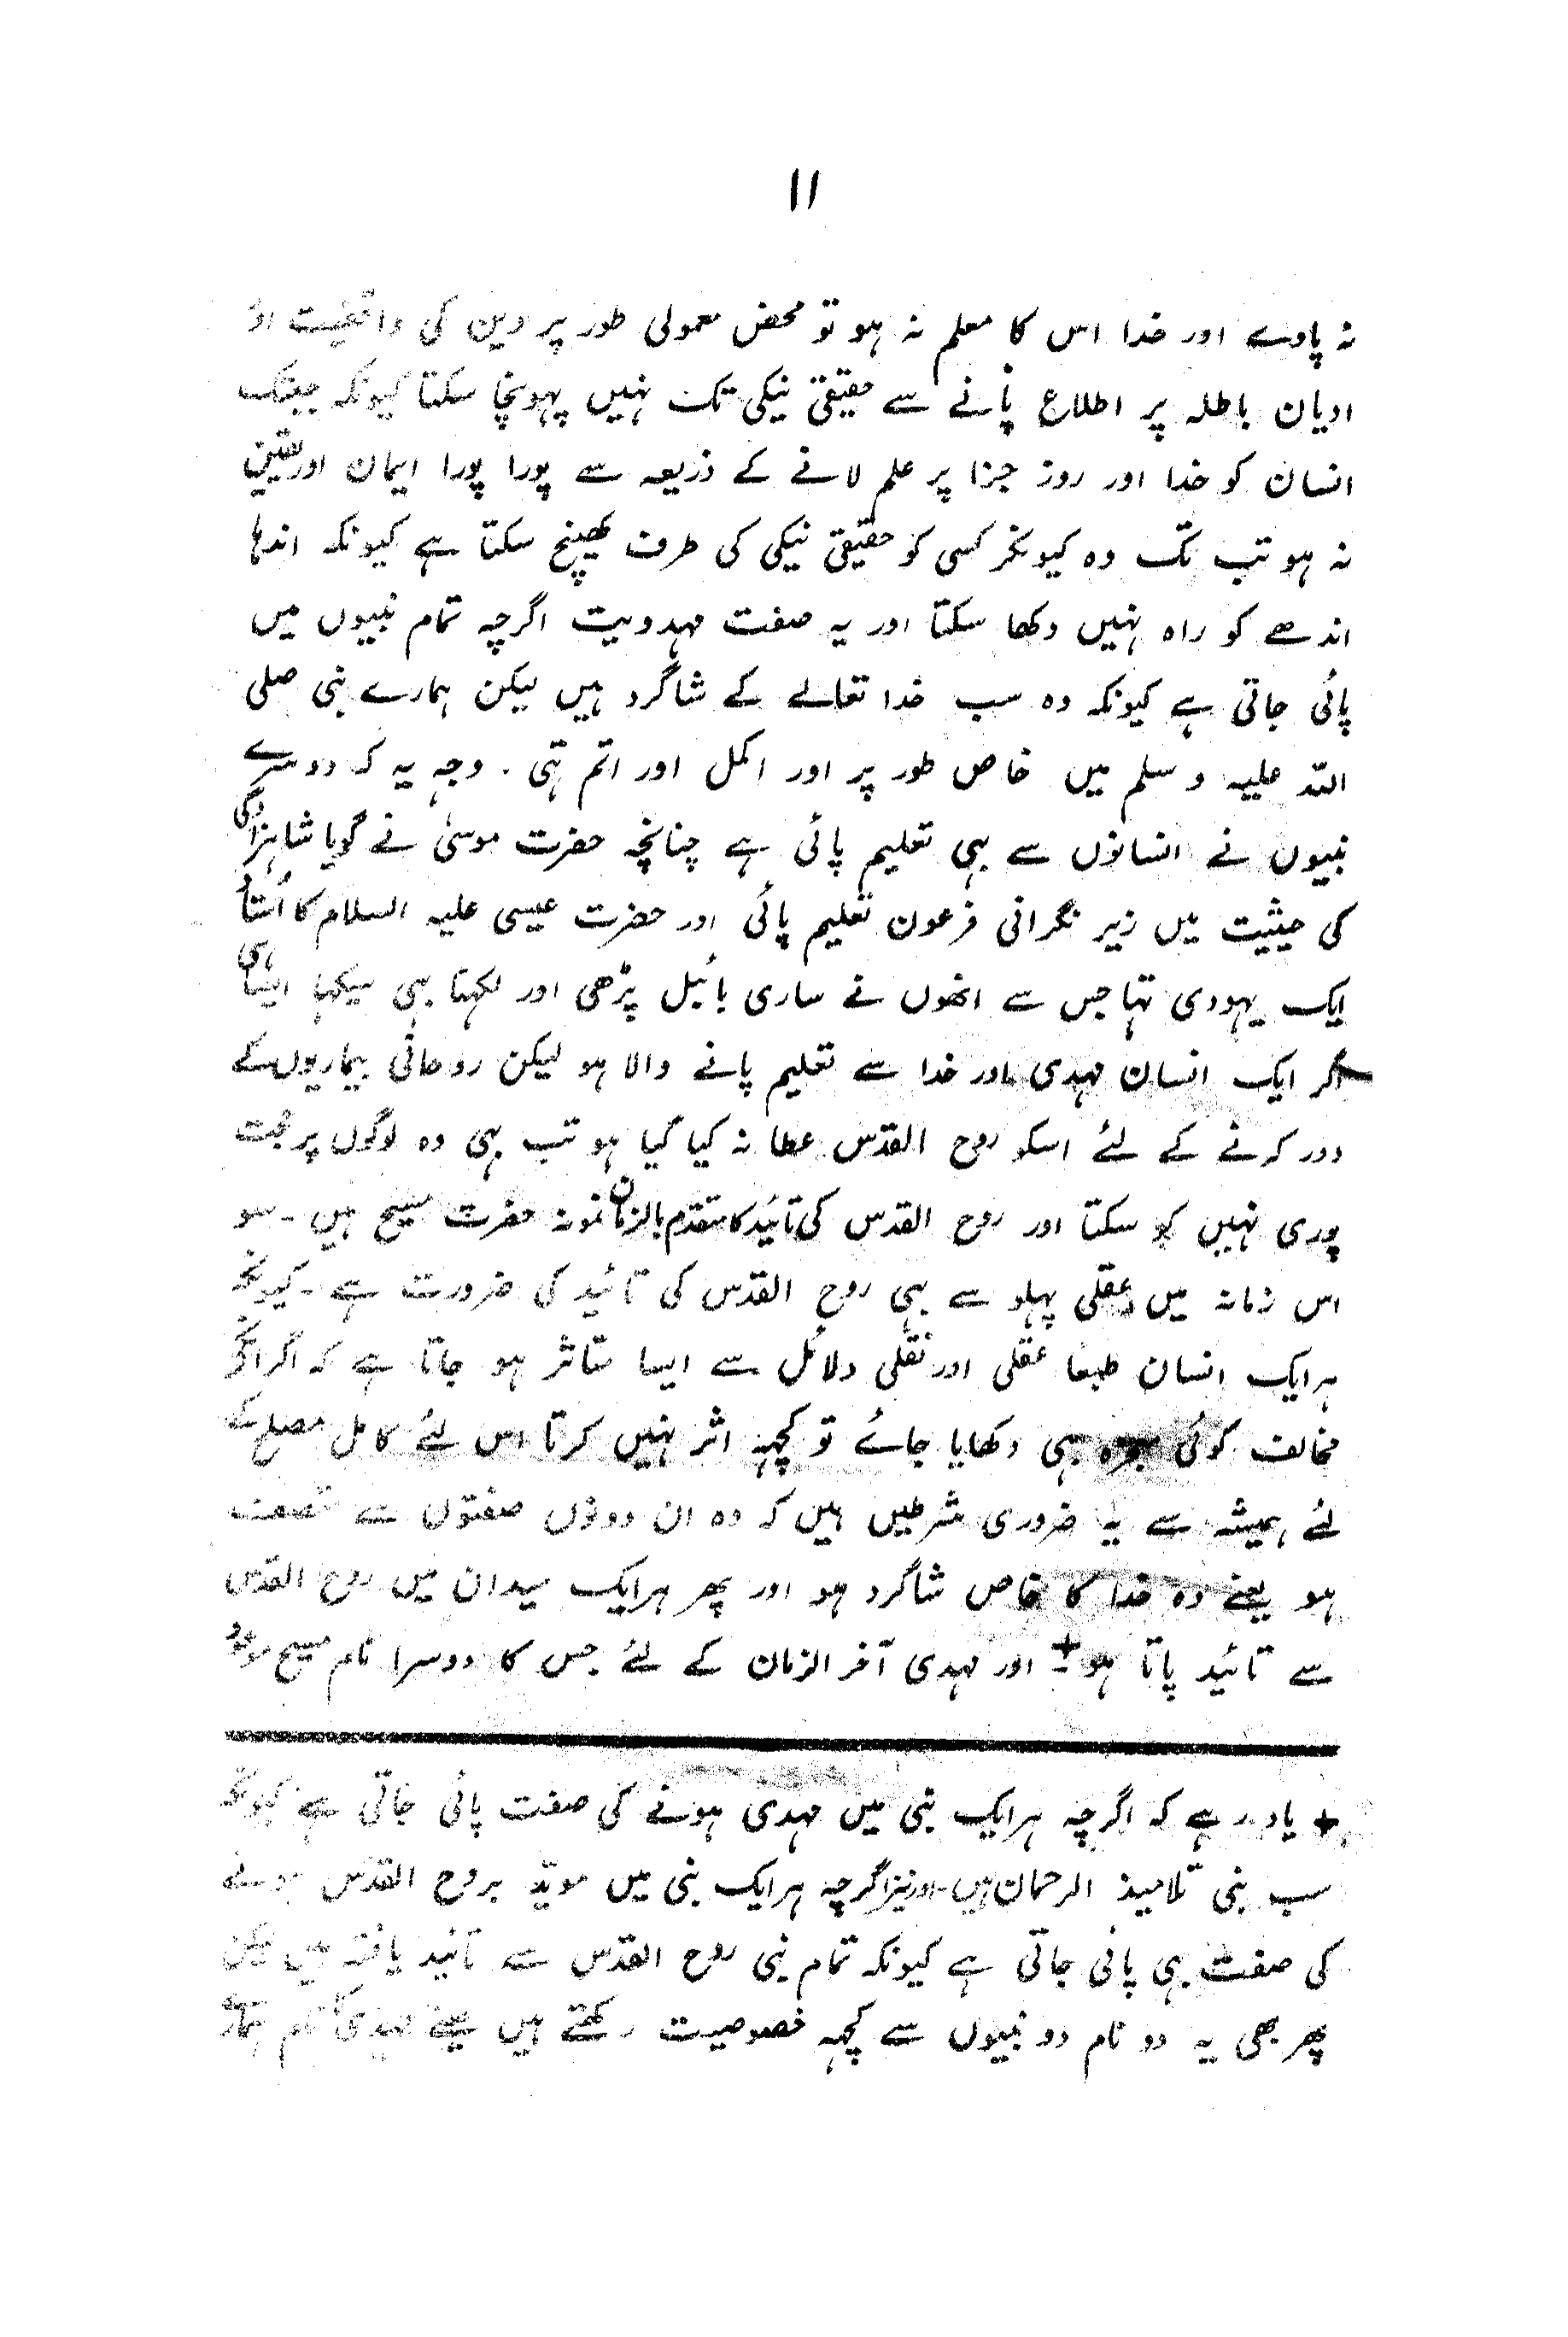 ۱۱
نہ پاوے اور خدا اس کا معلم نہ ہو تو محض معمولی طور پر دین کی واقفیت اور
ادیان باطلہ پر اطلاع پانے سے حقیقی نیکی تک نہیں پہونچا سکتا کیونکہ جبتک
انسان کو خدا اور روز جزا پر علم لانے کے ذریعہ سے پورا پورا ایمان اور یقین
نہ ہو تب تک وہ کیونکر کسی کو حقیقی نیکی کی طرف کھینچ سکتا ہے کیونکہ اندہا
اندھے کو راہ نہیں دکھا سکتا اور یہ صفت مہدویت اگرچہ تمام نبیوں میں
پائی جاتی ہے کیونکہ وہ سب خدا تعالے کے شاگرد ہیں لیکن ہمارے نبی صلی
اللہ علیہ وسلم میں خاص طور پر اور اکمل اور اتم تہی ۔ وجہ یہ کہ دوسرے
نبیوں نے انسانوں سے بہی تعلیم پائی ہے چنانچہ حضرت موسیٰ نے گویا شاہزادگی
کی حیثیت میں زیر نگرانی فرعون تعلیم پائی اور حضرت عیسی علیہ السلام کا اُستاد
ایک یہودی تہا جس سے انھوں نے ساری بائبل پڑھی اور لکہنا بہی سیکہا ایسا ہی
اگر ایک انسان مہدی اور خدا سے تعلیم پانے والا ہو لیکن روحانی بیماریوں کے
دور کرنے کے لئے اسکو روح القدس عطا نہ کیا گیا ہو تب بہی وہ لوگوں پر حجت
پوری نہیں کر سکتا اور روح القدس کی تائید کا متقدم بالزمان نمونہ حضرت مسیح ہیں ۔ سو
اس زمانہ میں عقلی پہلو سے بہی روح القدس کی تائید کی ضرورت ہے ۔ کیونکہ
ہر ایک انسان طبعا عقلی اور نقلی دلائل سے ایسا متاثر ہو جاتا ہے کہ اگر انکے
مخالف کوئی معجزہ بہی دکھایا جائے تو کچہہ اثر نہیں کرتا اس لئے کامل مصلح کے
لئے ہمیشہ سے یہ ضروری شرطیں ہیں کہ وہ ان دونوں صفتوں سے متصف
ہو یعنے وہ خدا کا خاص شاگرد ہو اور پھر ہر ایک میدان میں روح القدس
سے تائید پاتا ہو + ۔ اور مہدی آخر الزمان کے لئے جس کا دوسرا نام مسیح موعود
+ یاد رہے کہ اگرچہ ہر ایک نبی میں مہدی ہونے کی صفت پائی جاتی ہے کیونکہ
سب نبی تلامیذ الرحمان ہیں ۔ اور نیز اگرچہ ہر ایک نبی میں مویّد بروح القدس ہونے
کی صفت بہی پائی جاتی ہے کیونکہ تمام نبی روح القدس سے تائید یافتہ ہیں لیکن
پھر بھی یہ دو نام دو نبیوں سے کچہہ خصوصیت رکھتے ہیں یعنے مہدی کا نام ہمارے